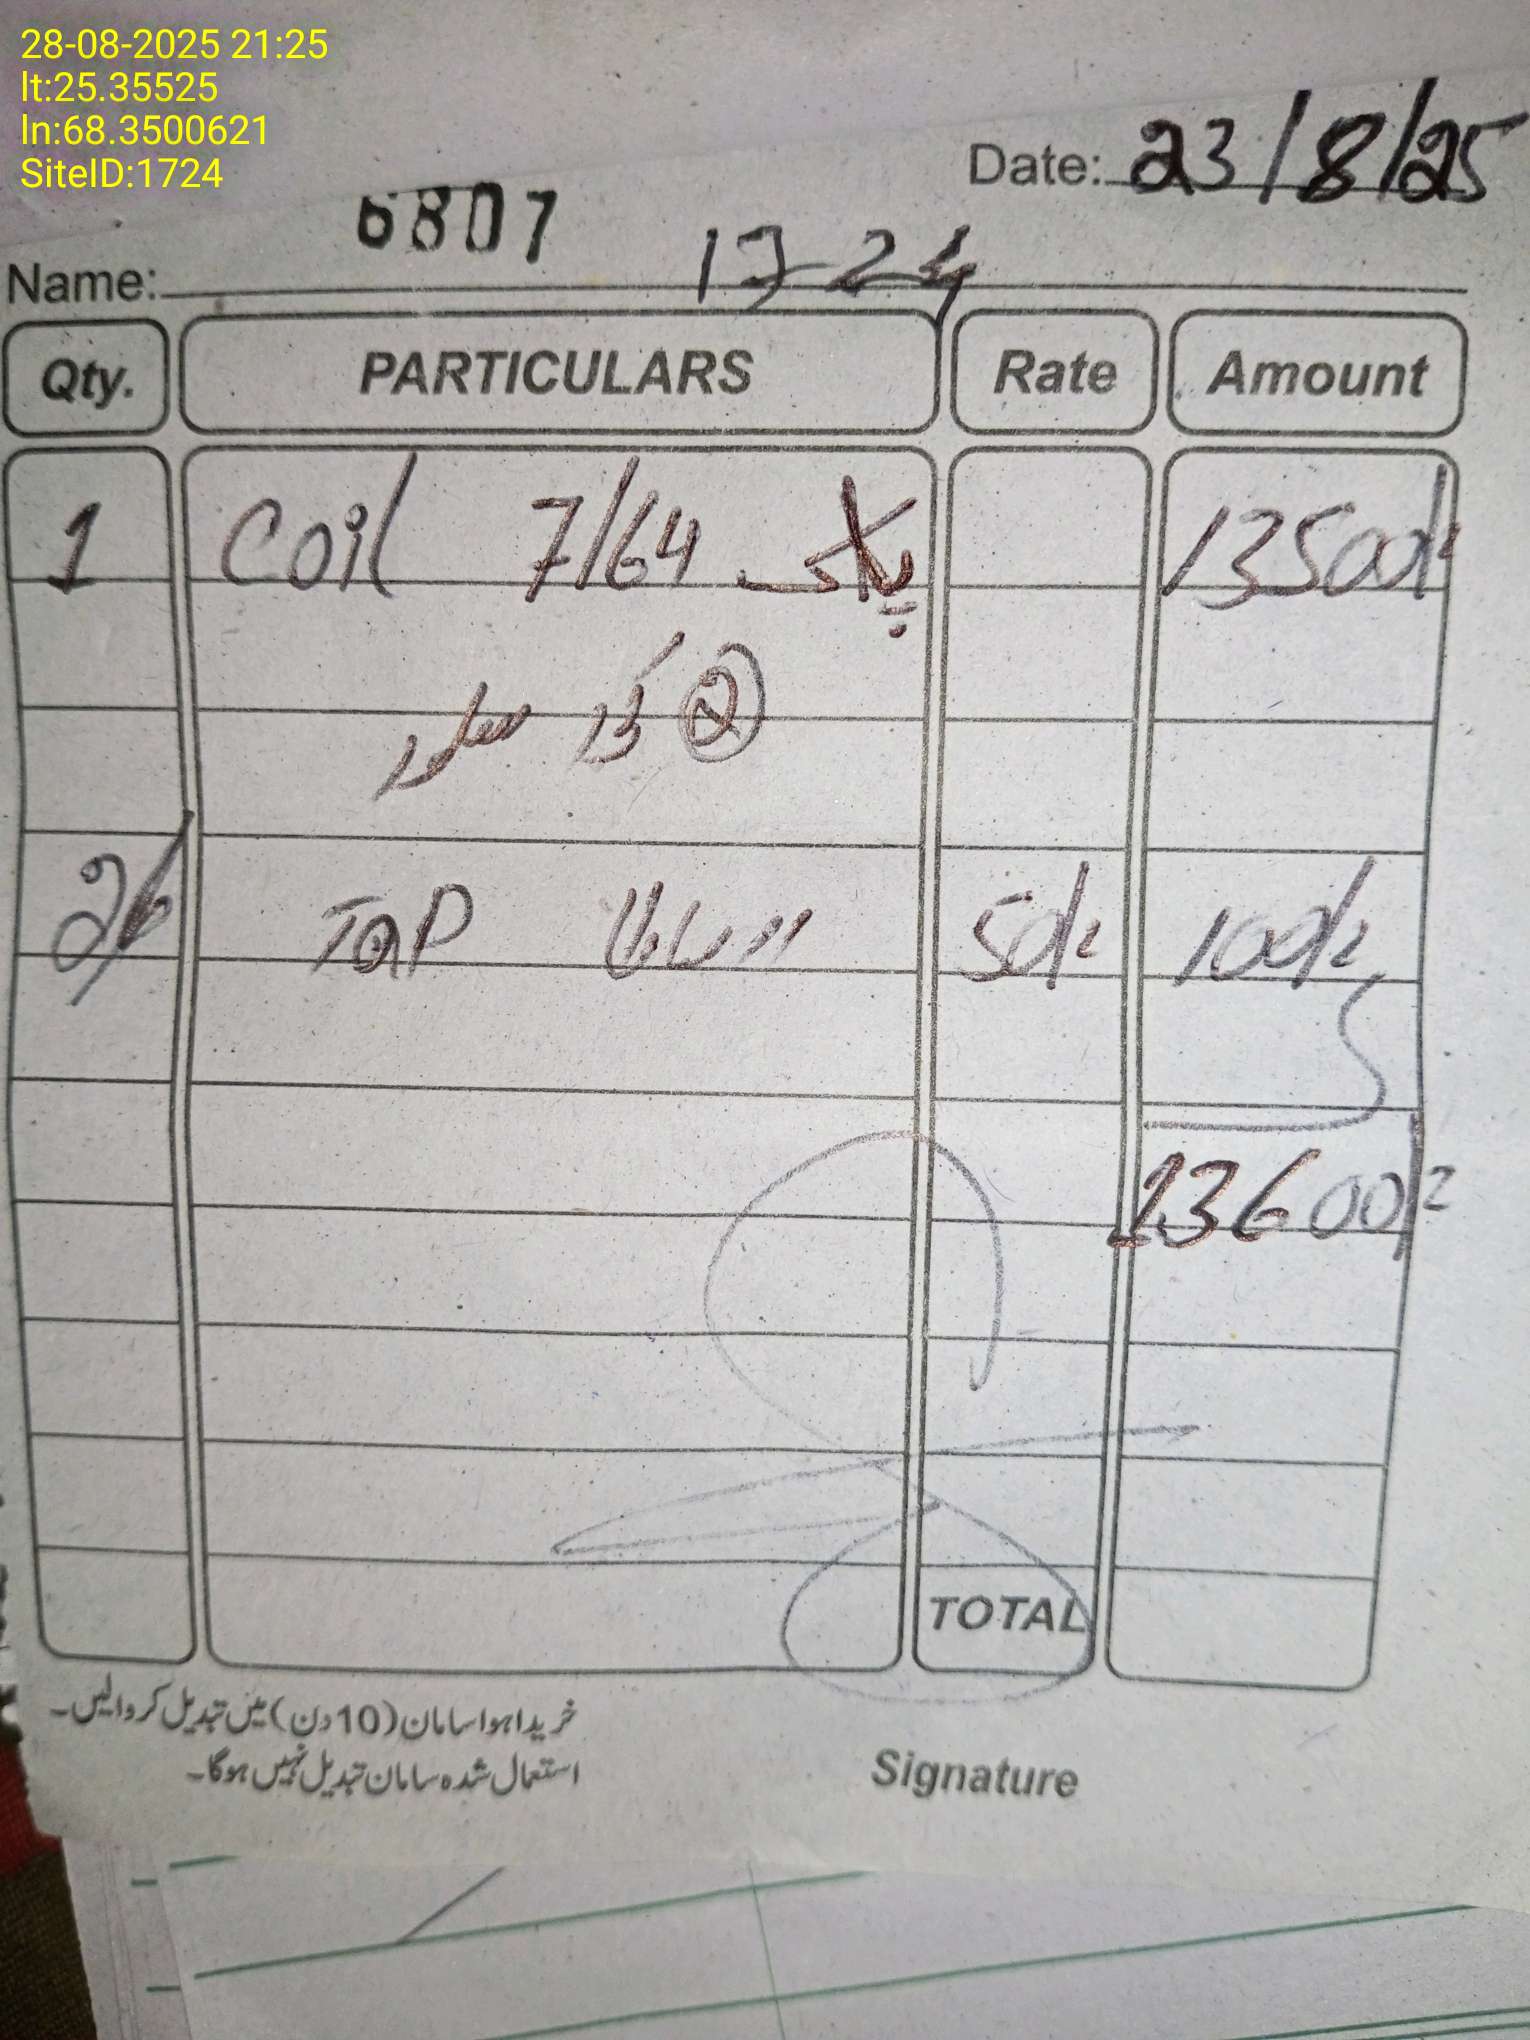 28-08-2025 21:25
lt:25.35525
ln:68.3500621
SiteID:1724
Date: 23/8/25
6807
Name: 1724
Qty. PARTICULARS Rate Amount
1 Coil 7/64 پاک 13500/=
2
2/ TAP 50/= 100/=
13600/=
TOTAL
خریدا ہوا سامان (10 دن) میں تبدیل کروالیں۔
استعمال شدہ سامان تبدیل نہیں ہوگا۔
Signature